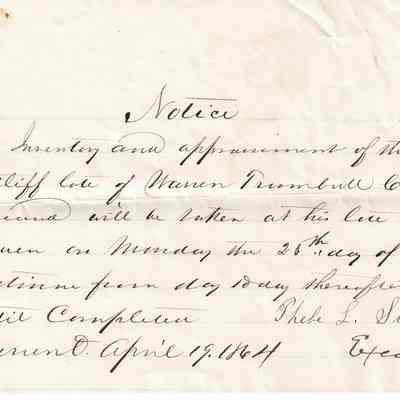 Notice
Inventory and appraisement of th
liff late of Warren Trumbull C
eased will be taken at his late
on Monday the 25th day of
tinue from day to day thereafte
til Completed Phebe L. Su
arren O. April 19. 1864 Exec